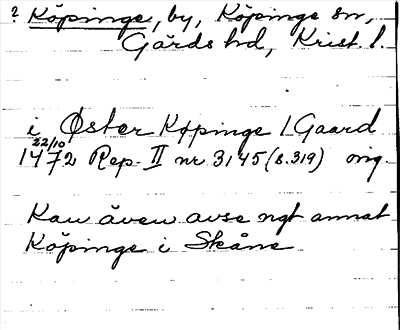 ? Köpinge, by, Köpinge sn,
Gärds hd, Krist. l.
i Øster Køpinge / Gaard
22/10
1472 Rep. II nr 3145 (s. 319) orig.
Kan även avse ngt annat
Köpinge i Skåne